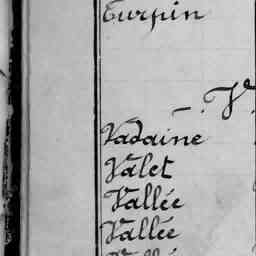 Turpin
- . V
Vadaine
Valet
Vallée
Vallée